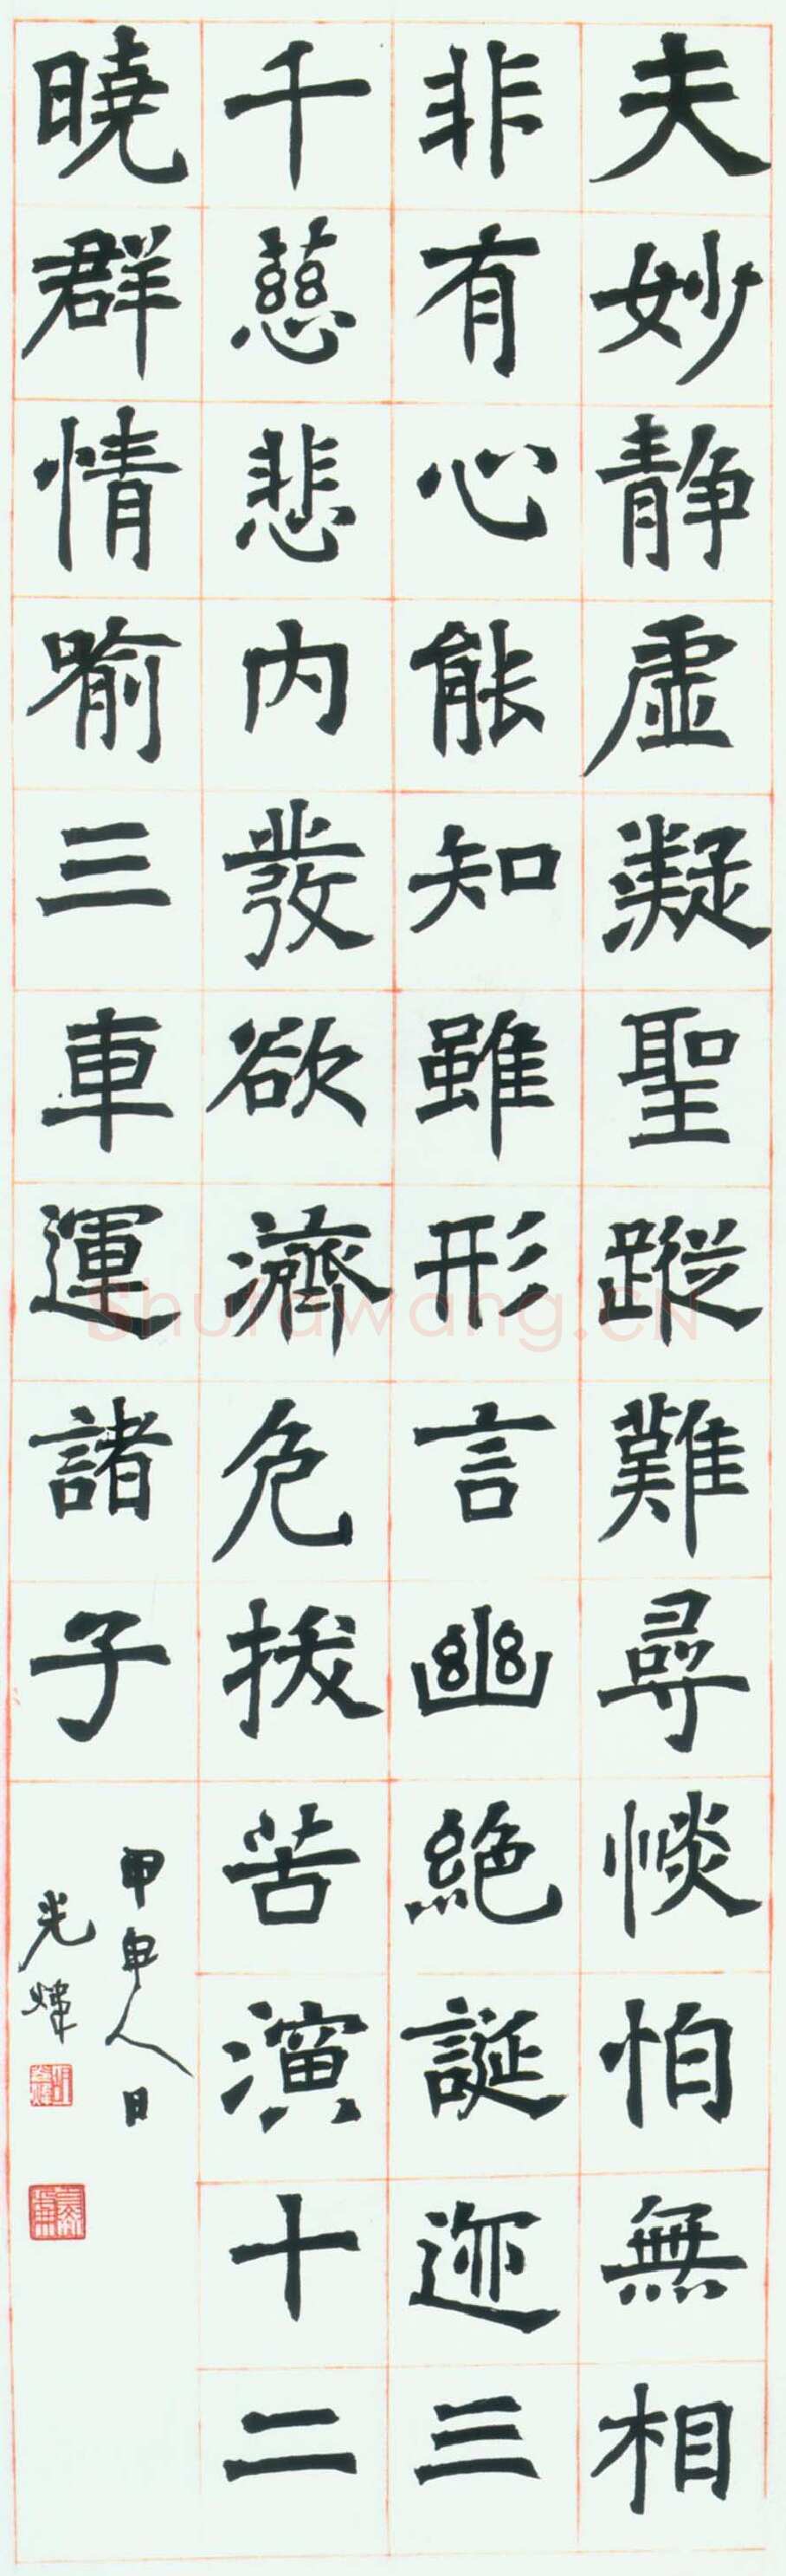 夫妙静虛凝聖蹤難尋惔怕無相
非有心能知雖形言幽絕誕迹三
千慈悲內發欲濟危拔苦演十二
曉群情喻三車運諸子
甲申人日
光煒
Shufawang.CN